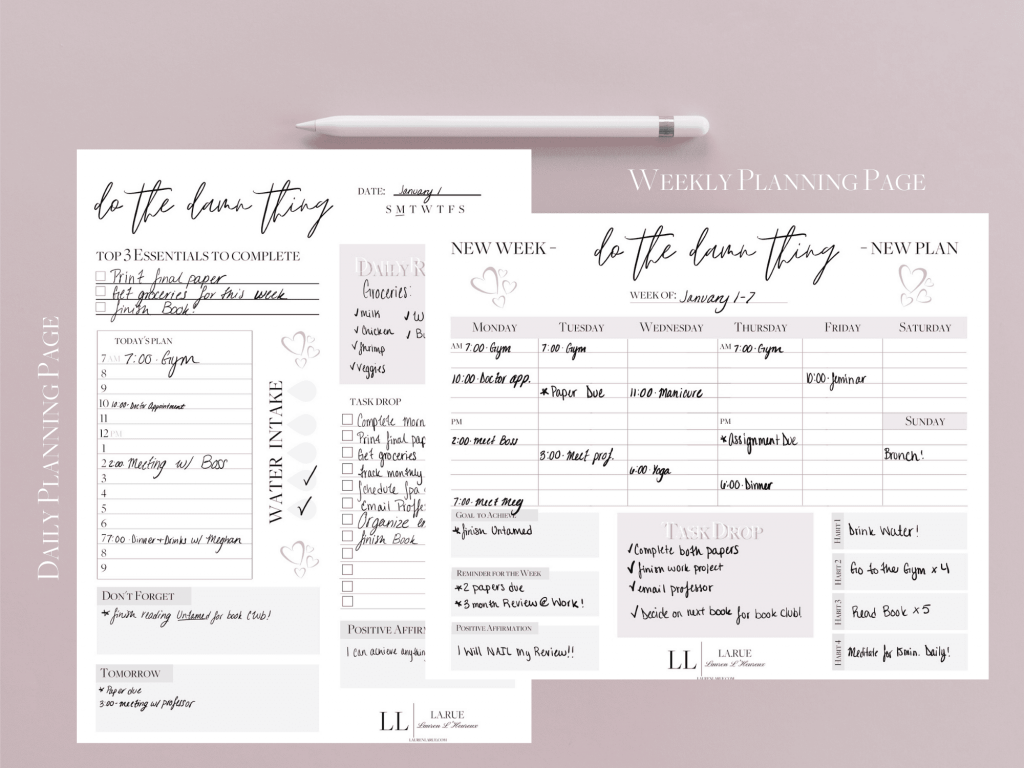 DAILY PLANNING PAGE
do the damn thing
DATE: January 1
S M T W T F S
TOP 3 ESSENTIALS TO COMPLETE
Print final paper
Get groceries for this week
finish Book!
TODAY'S PLAN
7 AM 7:00 · Gym
8
9
10 10:00 · Doctor Appointment
11
12 PM
1
2 2:00 Meeting w/ Boss
3
4
5
6
7 7:00 · Dinner + Drinks w/ Meghan
8
9
WATER INTAKE
✓
✓
DON'T FORGET
* finish reading Untamed for book club!
TOMORROW
* Paper due
3:00 · meeting w/ professor
DAILY R
Groceries:
✓ milk ✓ W
✓ Chicken ✓ Bu
✓ Shrimp
✓ veggies
TASK DROP
Complete morn
Print final pap
Get groceries
track monthly
Schedule Spa
email Profe
Organize em
finish Book
POSITIVE AFFIR
I can achieve anything
LL LA.RUE
Lauren L'Heureux
WEEKLY PLANNING PAGE
NEW WEEK – do the damn thing – NEW PLAN
WEEK OF: January 1-7
MONDAY TUESDAY WEDNESDAY THURSDAY FRIDAY SATURDAY
AM 7:00 · Gym 7:00 · Gym AM 7:00 · Gym
10:00 · Doctor app. 10:00 · Seminar
* Paper Due 11:00 · Manicure
PM PM SUNDAY
2:00 · meet Boss * Assignment Due
3:00 · Meet prof. Brunch!
6:00 · Yoga
6:00 · Dinner
7:00 · Meet Meg
GOAL TO ACHIEVE
* finish Untamed
REMINDER FOR THE WEEK
* 2 papers due
* 3 month Review @ Work!
POSITIVE AFFIRMATION
I Will NAIL my Review!!
TASK DROP
✓ Complete both papers
✓ finish work project
✓ email professor
✓ Decide on next book for book club!
HABIT 1 Drink Water!
HABIT 2 Go to the Gym x 4
HABIT 3 Read Book x 5
HABIT 4 Meditate for 15 min. Daily!
LL LA.RUE
Lauren L'Heureux